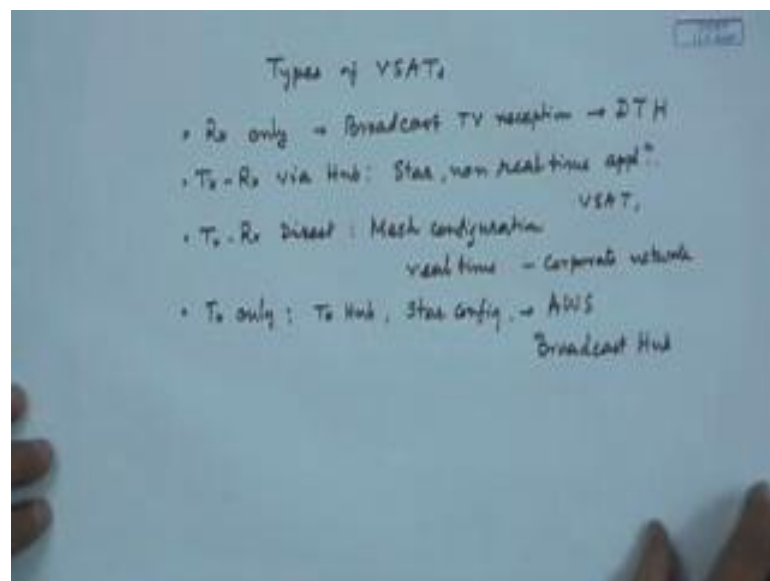 Types of VSATs
• Rx only → Broadcast TV reception → DTH
• Tx-Rx via Hub: Star, non real time appln.
VSAT,
• Tx-Rx Direct: Mesh configuration
real time - Corporate network
• Tx only: To Hub, Star config, → AWS
Broadcast Hub